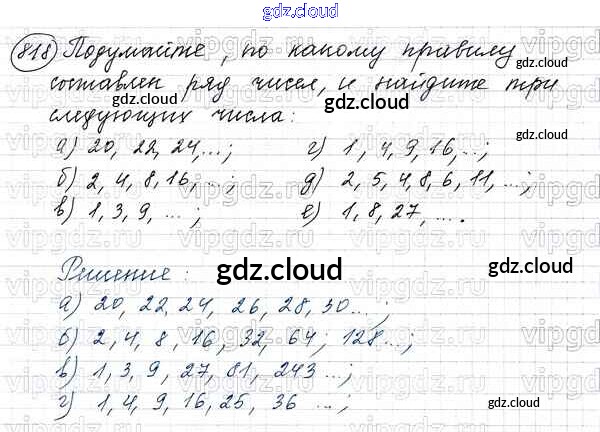 gdz.cloud
818 Подумайте, по какому правилу
gdz.cloud
составлен ряд чисел, и найдите три
gdz.cloud
следующих числа:
gdz.cloud
а) 20, 22, 24,...; г) 1, 4, 9, 16,...;
б) 2, 4, 8, 16, ...; д) 2, 5, 4, 8, 6, 11,...;
gdz.cloud
в) 1, 3, 9, ...; е) 1, 8, 27, ....
Решение:
gdz.cloud
gdz.cloud
а) 20, 22, 24, 26, 28, 30...;
б) 2, 4, 8, 16, 32, 64; 128...;
в) 1, 3, 9, 27, 81, 243...;
г) 1, 4, 9, 16, 25, 36 ...;
gdz.cloud
gdz.cloud